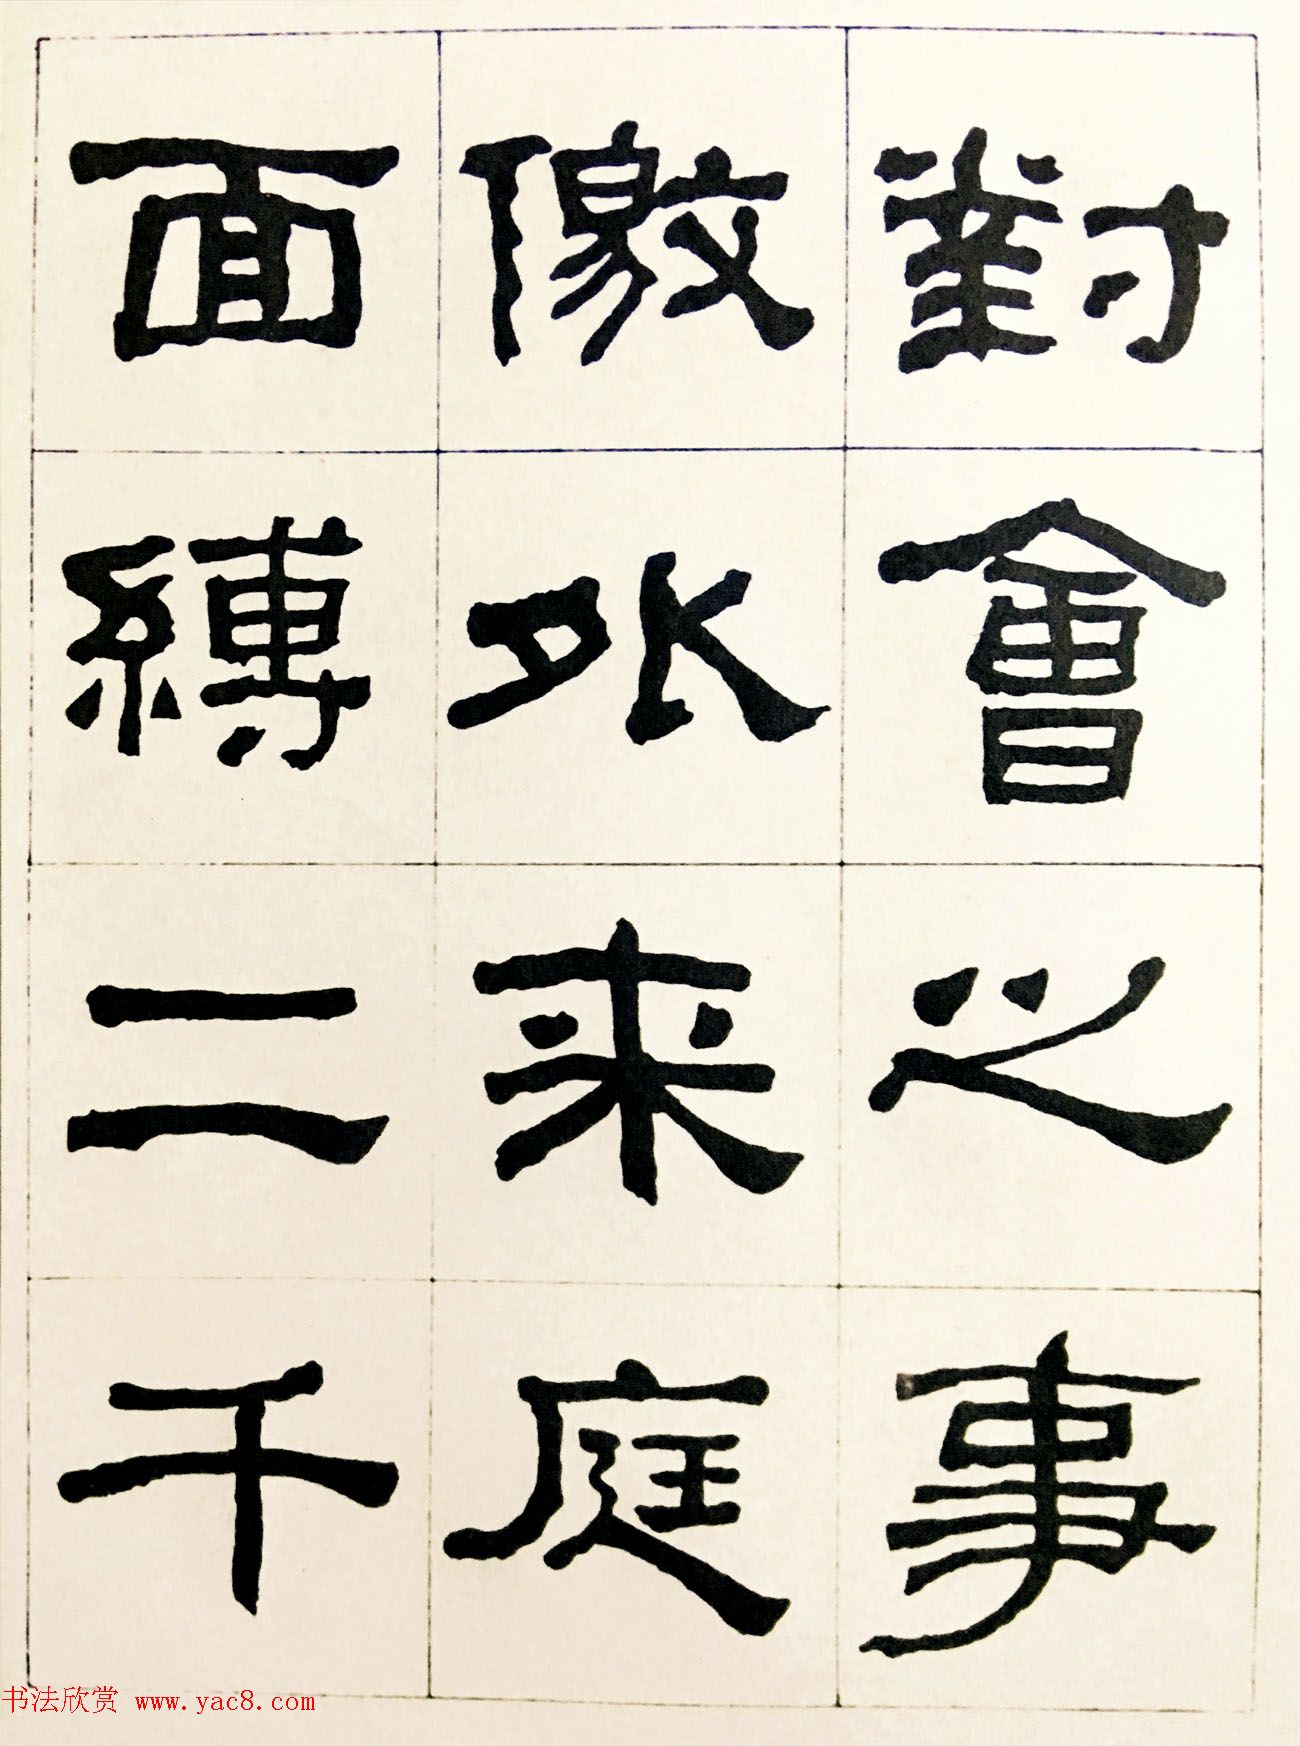 對會之事
徼外來庭
面縛二千
书法欣赏 www.yac8.com